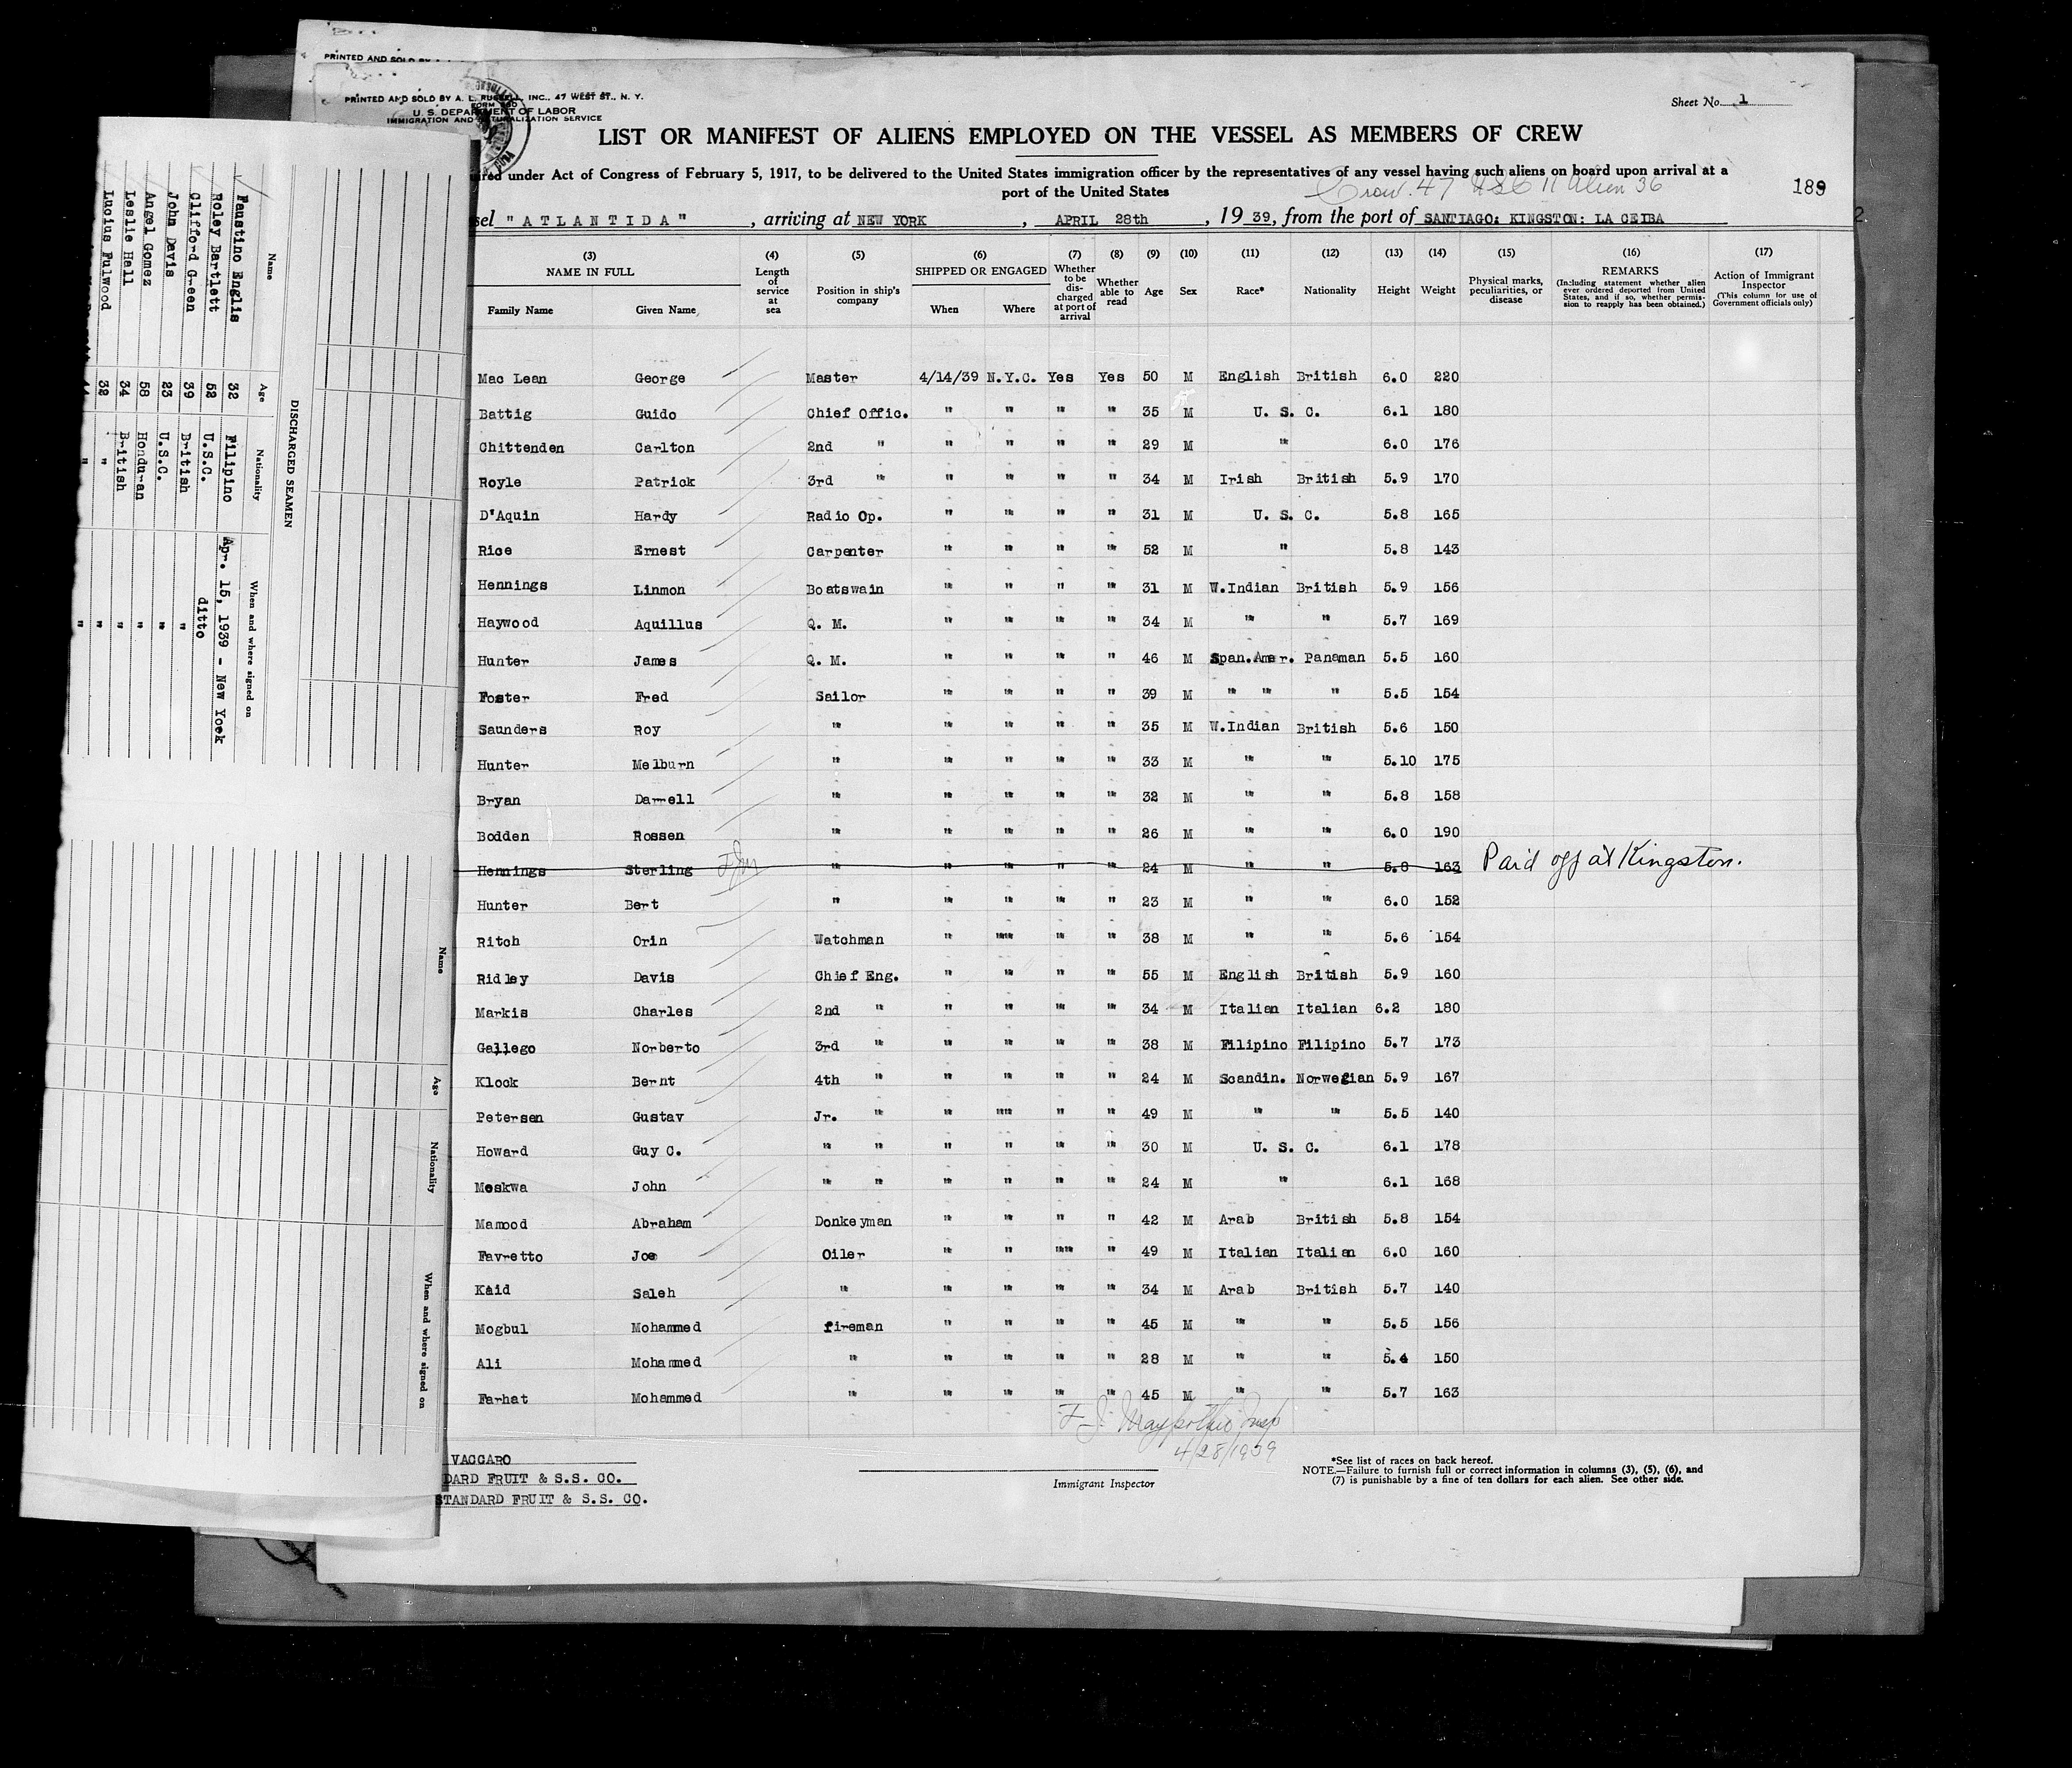 PRINTED AND SOLD BY A. L. RUSSELL, INC., 47 WEST ST., N. Y.
U. S. DEPARTMENT OF LABOR
IMMIGRATION AND NATURALIZATION SERVICE
Sheet No. 1
LIST OR MANIFEST OF ALIENS EMPLOYED ON THE VESSEL AS MEMBERS OF CREW
under Act of Congress of February 5, 1917, to be delivered to the United States immigration officer by the representatives of any vessel having such aliens on board upon arrival at a
port of the United States
Crew. 47 USC 11 Alien 36
189
sel "ATLANTIDA", arriving at NEW YORK, APRIL 28th, 1939, from the port of SANTIAGO: KINGSTON: LA CEIBA
(3) (4) (5) (6) (7) (8) (9) (10) (11) (12) (13) (14) (15) (16) (17)
NAME IN FULL Family Name Given Name
Length of service at sea
Position in ship's company
SHIPPED OR ENGAGED When Where
Whether to be discharged at port of arrival
Whether able to read
Age Sex Race* Nationality Height Weight
Physical marks, peculiarities, or disease
REMARKS (Including statement whether alien ever ordered deported from United States, and if so, whether permission to reapply has been obtained.)
Action of Immigrant Inspector (This column for use of Government officials only)
Mac Lean George Master 4/14/39 N.Y.C. Yes Yes 50 M English British 6.0 220
Battig Guido Chief Offic. " " " " 35 M U. S. C. 6.1 180
Chittenden Carlton 2nd " " " " " 29 M " 6.0 176
Royle Patrick 3rd " " " " " 34 M Irish British 5.9 170
D'Aquin Hardy Radio Op. " " " " 31 M U. S. C. 5.8 165
Rice Ernest Carpenter " " " " 52 M " 5.8 143
Hennings Linmon Boatswain " " " " 31 M W.Indian British 5.9 156
Haywood Aquillus Q. M. " " " " 34 M " " 5.7 169
Hunter James Q. M. " " " " 46 M Span.Amer. Panaman 5.5 160
Foster Fred Sailor " " " " 39 M " " " 5.5 154
Saunders Roy " " " " " 35 M W.Indian British 5.6 150
Hunter Melburn " " " " " 33 M " " 5.10 175
Bryan Darrell " " " " " 32 M " " 5.8 158
Bodden Rossen " " " " " 26 M " " 6.0 190
Hennings Sterling " " " " " 24 M " " 5.8 163 Paid off at Kingston.
Hunter Bert " " " " " 23 M " " 6.0 152
Ritch Orin Watchman " " " " 38 M " " 5.6 154
Ridley Davis Chief Eng. " " " " 55 M English British 5.9 160
Markis Charles 2nd " " " " " 34 M Italian Italian 6.2 180
Gallego Norberto 3rd " " " " " 38 M Filipino Filipino 5.7 173
Klock Bernt 4th " " " " " 24 M Scandin. Norwegian 5.9 167
Petersen Gustav Jr. " " " " " 49 M " " 5.5 140
Howard Guy C. " " " " " " 30 M U. S. C. 6.1 178
Moskwa John " " " " " " 24 M " 6.1 168
Mamood Abraham Donkeyman " " " " 42 M Arab British 5.8 154
Favretto Joe Oiler " " " " 49 M Italian Italian 6.0 160
Kaid Saleh " " " " " 34 M Arab British 5.7 140
Mogbul Mohammed fireman " " " " 45 M " " 5.5 156
Ali Mohammed " " " " " 28 M " " 5.4 150
Farhat Mohammed " " " " " 45 M " " 5.7 163
4/28/1939
Immigrant Inspector
*See list of races on back hereof.
NOTE.—Failure to furnish full or correct information in columns (3), (5), (6), and
(7) is punishable by a fine of ten dollars for each alien. See other side.
VACCARO
DARD FRUIT & S.S. CO.
STANDARD FRUIT & S.S. CO.
DISCHARGED SEAMEN
Name Age Nationality When and where signed on
Faustino Englis 32 Filipino Apr. 15, 1939 - New Yook
Roley Bartlett 52 U.S.C. ditto
Clifford Green 39 British "
John Davis 23 U.S.C. "
Angel Gomez 58 Honduran "
Leslie Hall 34 British "
Lucius Fulwood 32 " "
Name Age Nationality When and where signed on